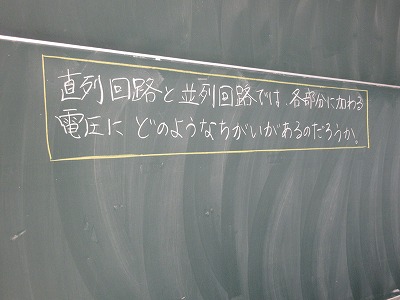 直列回路と並列回路では、各部分に加わる
電圧に どのようなちがいがあるのだろうか。